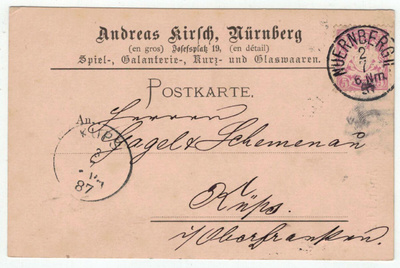 Andreas Kirsch, Nürnberg
(en gros) Josefsplatz 19, (en détail)
Spiel-, Galanterie-, Kurz- und Glaswaaren.
NUERNBERG II
2
7
6 Nm
POSTKARTE.
An
Herren
Gagel & Schemenau
KÜPS
87
Küps
i/Oberfranken.